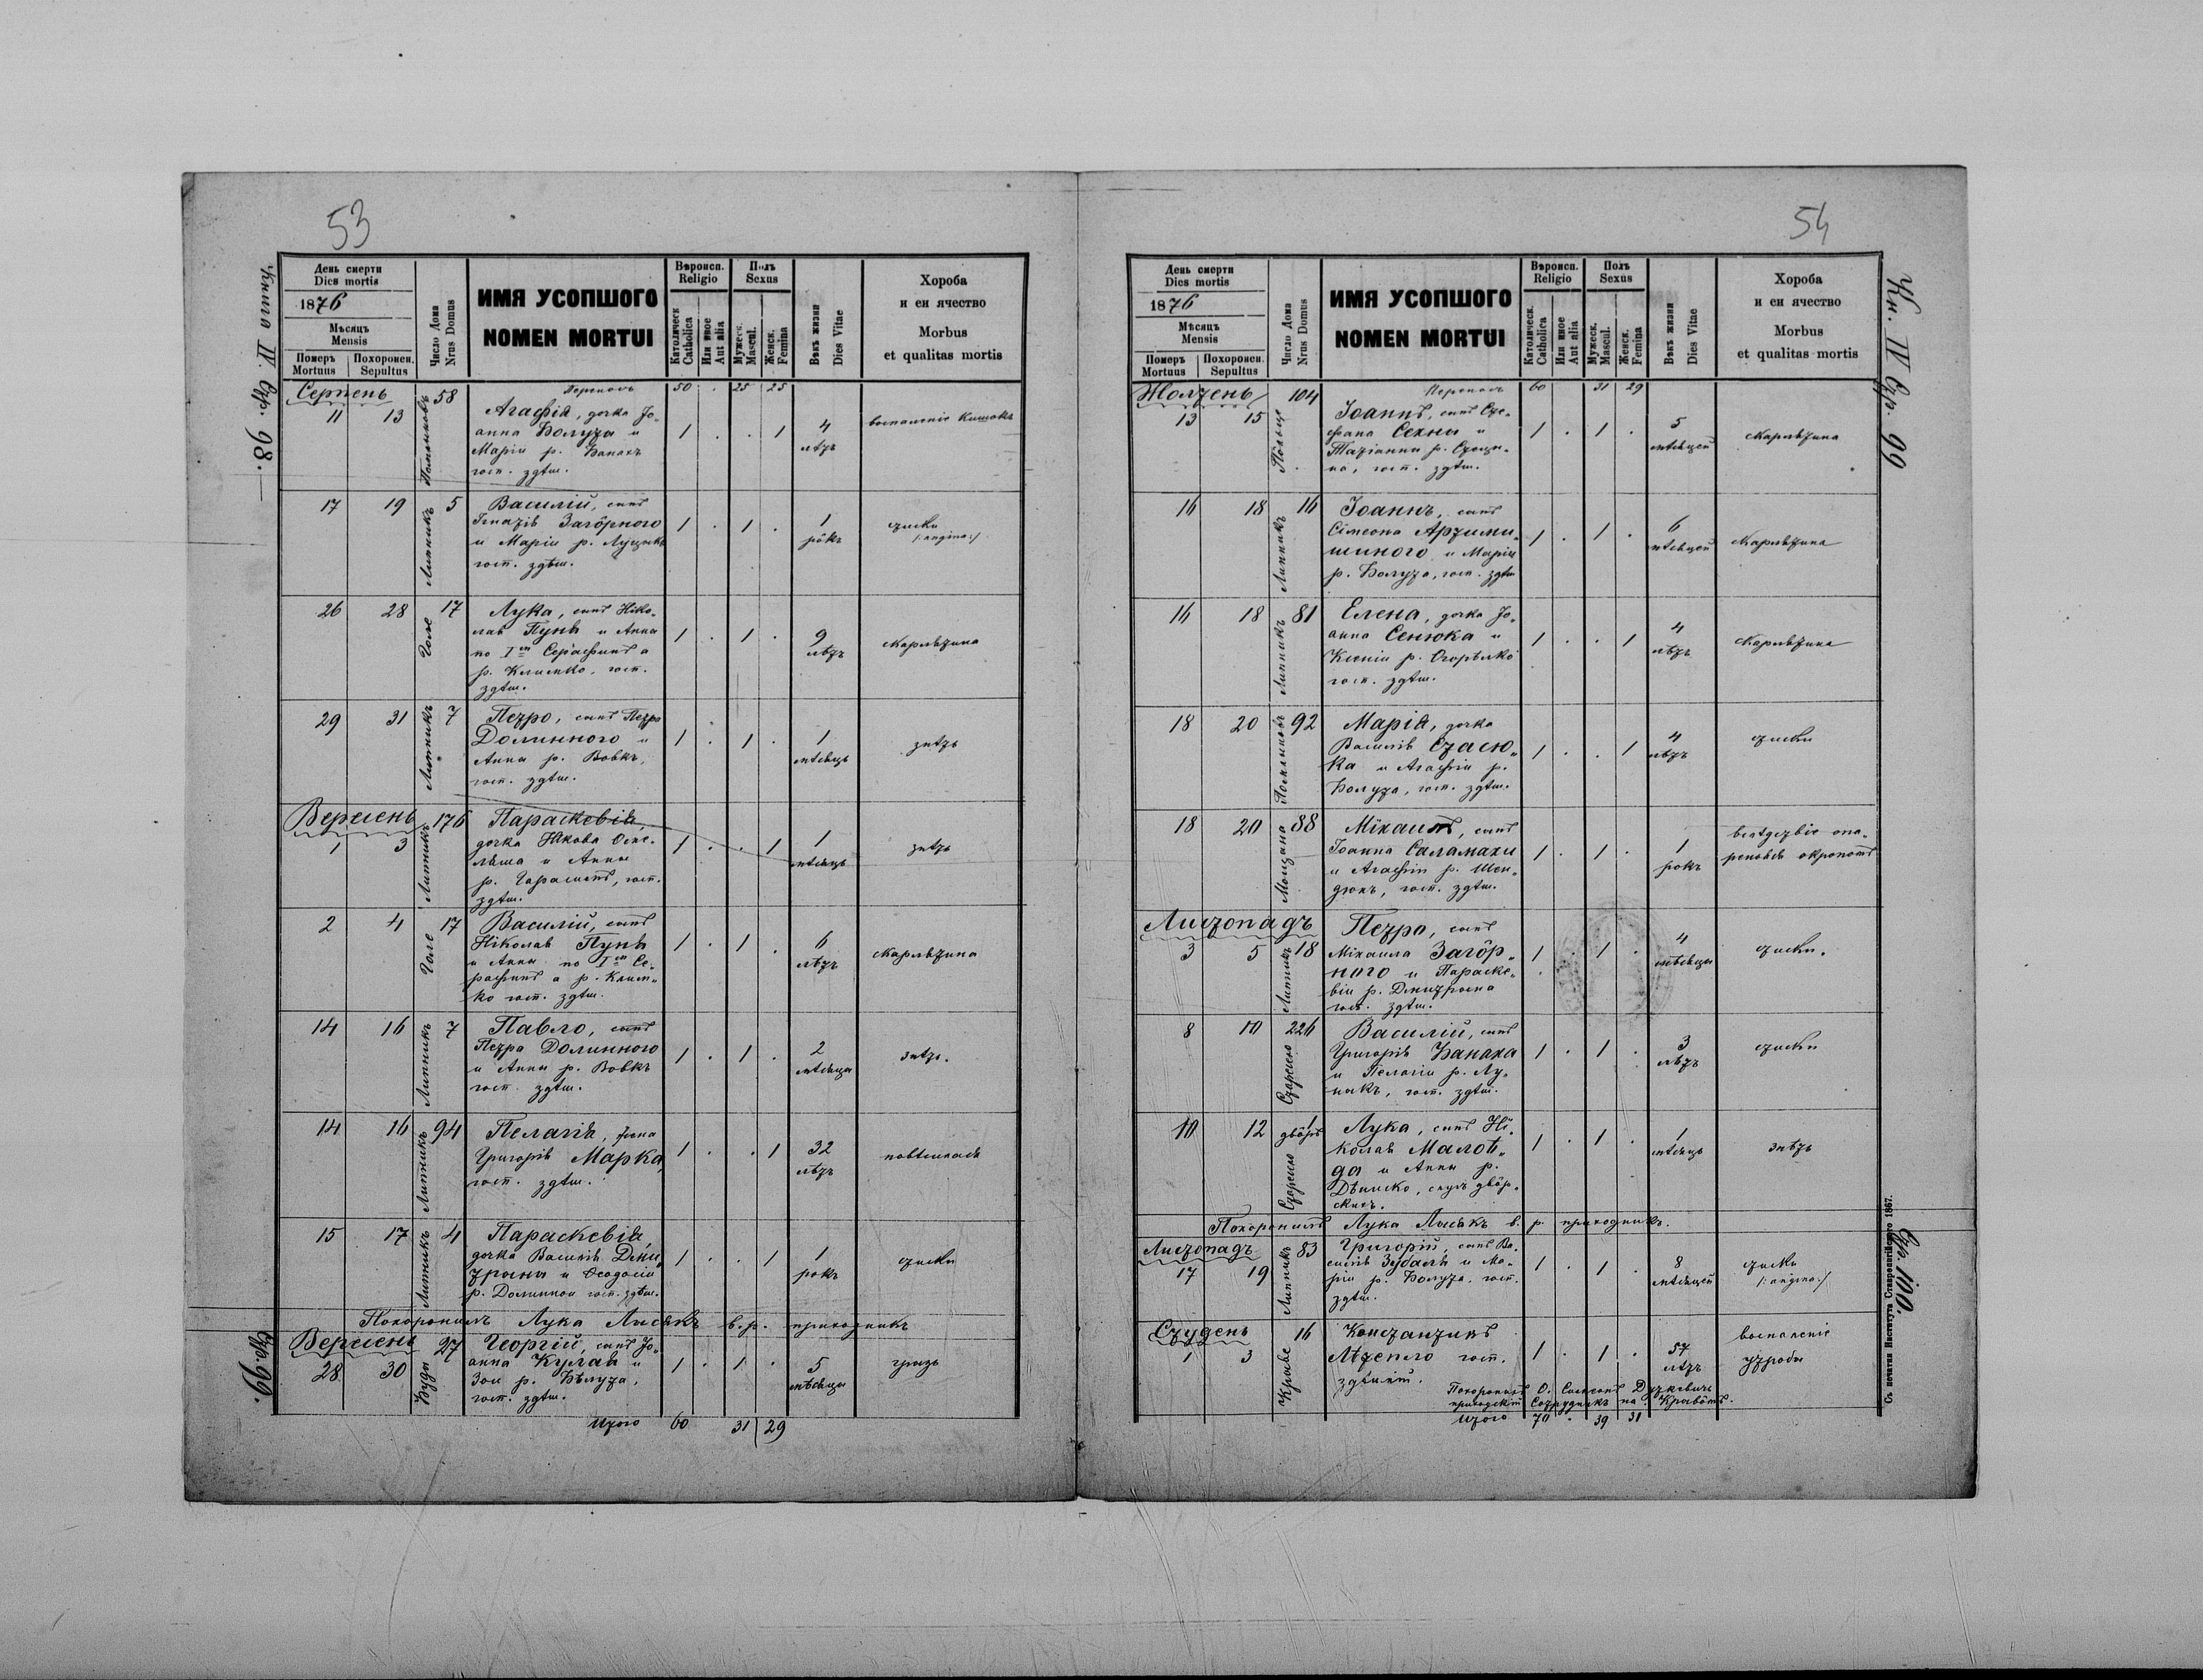 53
Книга IV. Стр. 98.
День смерти
Dies mortis
1876
Мѣсяцъ
Mensis
Померъ
Mortuus
Похоронен.
Sepultus
Число Дома
Nrus Domus
ИМЯ УСОПШОГО
NOMEN MORTUI
Вѣроисп.
Religio
Католическ
Catholica
Или иное
Aut alia
Полъ
Sexus
Мужеск.
Mascul.
Женск.
Femina
Вѣкъ жизни
Dies Vitae
Хороба
и еи ячество
Morbus
et qualitas mortis
Переносъ 50 . 25 25
Серпень
11 13 58
Агафія, дочка Іо-
анна Болута и
Маріи р. Банахъ
госп. здѣш.
1 . . 1
4
лѣтъ
воспаленіе кишокъ
17 19 Липникъ 5
Василій, сынъ
Игнатія Загôрного
и Маріи р. Луцикъ
госп. здѣш.
1 . 1 .
1
рôкъ
стиски
/: angina :/
26 28 Голе 17
Лука, сынъ Ніко-
лая Пуня и Анны
по Iм Серафинъ а
р. Климко, госп.
здѣш.
1 . 1 .
9
лѣтъ
скарлятина
29 31 Липникъ 7
Петро, сынъ Петра
Долинного и
Анны р. Вовкъ,
госп. здѣш.
1 . 1 .
1
мѣсяць
знѣтъ
Вересень
1 3 Липникъ 176
Параскевія,
дочка Якова
и Анны
р. Гарасимъ, госп.
здѣш.
1 . . 1
1
мѣсяць
знѣтъ
2 4 Голе 17
Василій, сынъ
Николая Пуня
и Анны по Iм Се-
рафинъ а р. Клим-
ко госп. здѣш.
1 . 1 .
6
лѣтъ
скарлятина
14 16 Липникъ 7
Павло, сынъ
Петра Долинного
и Анны р. Вовкъ
госп. здѣш.
1 . 1 .
2
мѣсяци
знѣтъ.
14 16 Липникъ 94
Пелагія, жена
Григорія Марка
госп. здѣш.
1 . . 1
32
лѣтъ
15 17 Липникъ 4
Параскевія,
дочка Василія Дми-
трыны и Феодосіи
р. Долинной госп. здѣш.
1 . . 1
1
рокъ
стиски
Похоронилъ Лука Лысякъ в. р. приходникъ
Вересень
28 30 Буды 27
Георгій, сынъ Іо-
анна Кулая и
Зои р. Бѣлута,
госп. здѣш.
1 . 1 .
5
мѣсяци
грызь
Итого 60 31 29
Стр. 99.
54
Кн. IV Стр. 99
День смерти
Dies mortis
1876
Мѣсяцъ
Mensis
Померъ
Mortuus
Похоронен.
Sepultus
Число Дома
Nrus Domus
ИМЯ УСОПШОГО
NOMEN MORTUI
Вѣроисп.
Religio
Католическ.
Catholica
Или иное
Aut alia
Полъ
Sexus
Мужеск.
Mascul.
Женск.
Femina
Вѣкъ жизни
Dies Vitae
Хороба
и еи ячество
Morbus
et qualitas mortis
Переносъ 60 31 29
Жолтень
13 15 104
Іоаннъ, сынъ Сте-
фана Сехны и
Татіанны р. Стеци-
на, госп. здѣш.
1 . 1 .
5
мѣсяцей
скарлятина
16 18 Липникъ 16
Іоаннъ, сынъ
Сімеона Артими-
шиного и Маріи
р. Болута, госп. здѣш
1 . 1 .
6
мѣсяцей
скарлятина
16 18 Липникъ 81
Елена, дочка Іо-
анна Сенюка и
Ксеніи р. Огорѣлко
госп. здѣш.
1 . . 1
4
лѣтъ
скарлятина
18 20 92
Марія, дочка
Василія Стасю-
ка и Агафіи р.
Болута, госп. здѣш.
1 . . 1
4
лѣтъ
стиски
18 20 Мощана 88
Міхаилъ, сынъ
Іоанна Саламахи
и Агафіи р. Шен-
дюкъ, госп. здѣш.
1 . 1 .
1
рокъ
вслѣдствіе опа-
реньися окропомъ
Листопадъ
3 5 Липникъ 18
Петро, сынъ
Міхаила Загôр-
ного и Параске-
віи р. Дмитрына
госп. здѣш.
1 . 1 .
4
мѣсяци
стиски.
8 10 Старсело 226
Василій, сынъ
Григорія Банаха
и Пелагіи р. Лу-
, госп. здѣш.
1 . 1 .
3
лѣтъ
стиски
10 12 Старсело двôръ 1
Лука, сынъ Ні-
колая Малоѣ-
да и Анны р.
слугъ двôр-
скихъ.
1 . 1 .
1
мѣсяць
знѣтъ
Похоронилъ Лука Лысякъ в. р. приходникъ.
Листопадъ
17 19 Липникъ 83
Григорій, сынъ Ва-
силія Зубаля и Ма-
ріи р. Болута, госп.
здѣш.
1 . 1 .
8
мѣсяцей
стиски
/: angina :/
Студень
1 3 Кравце 16
Константинъ
Лѣтепло госп.
здѣшній.
1 . 1 .
57
лѣтъ
воспаленіе
утробы
Похоронилъ О. Сильвестръ Дуткевичъ
приходскій Сотрудникъ на Кравцяхъ.
Итого 70 . 39 31
Съ печатни Института Ставропигійского 1867.
Стр. 100.